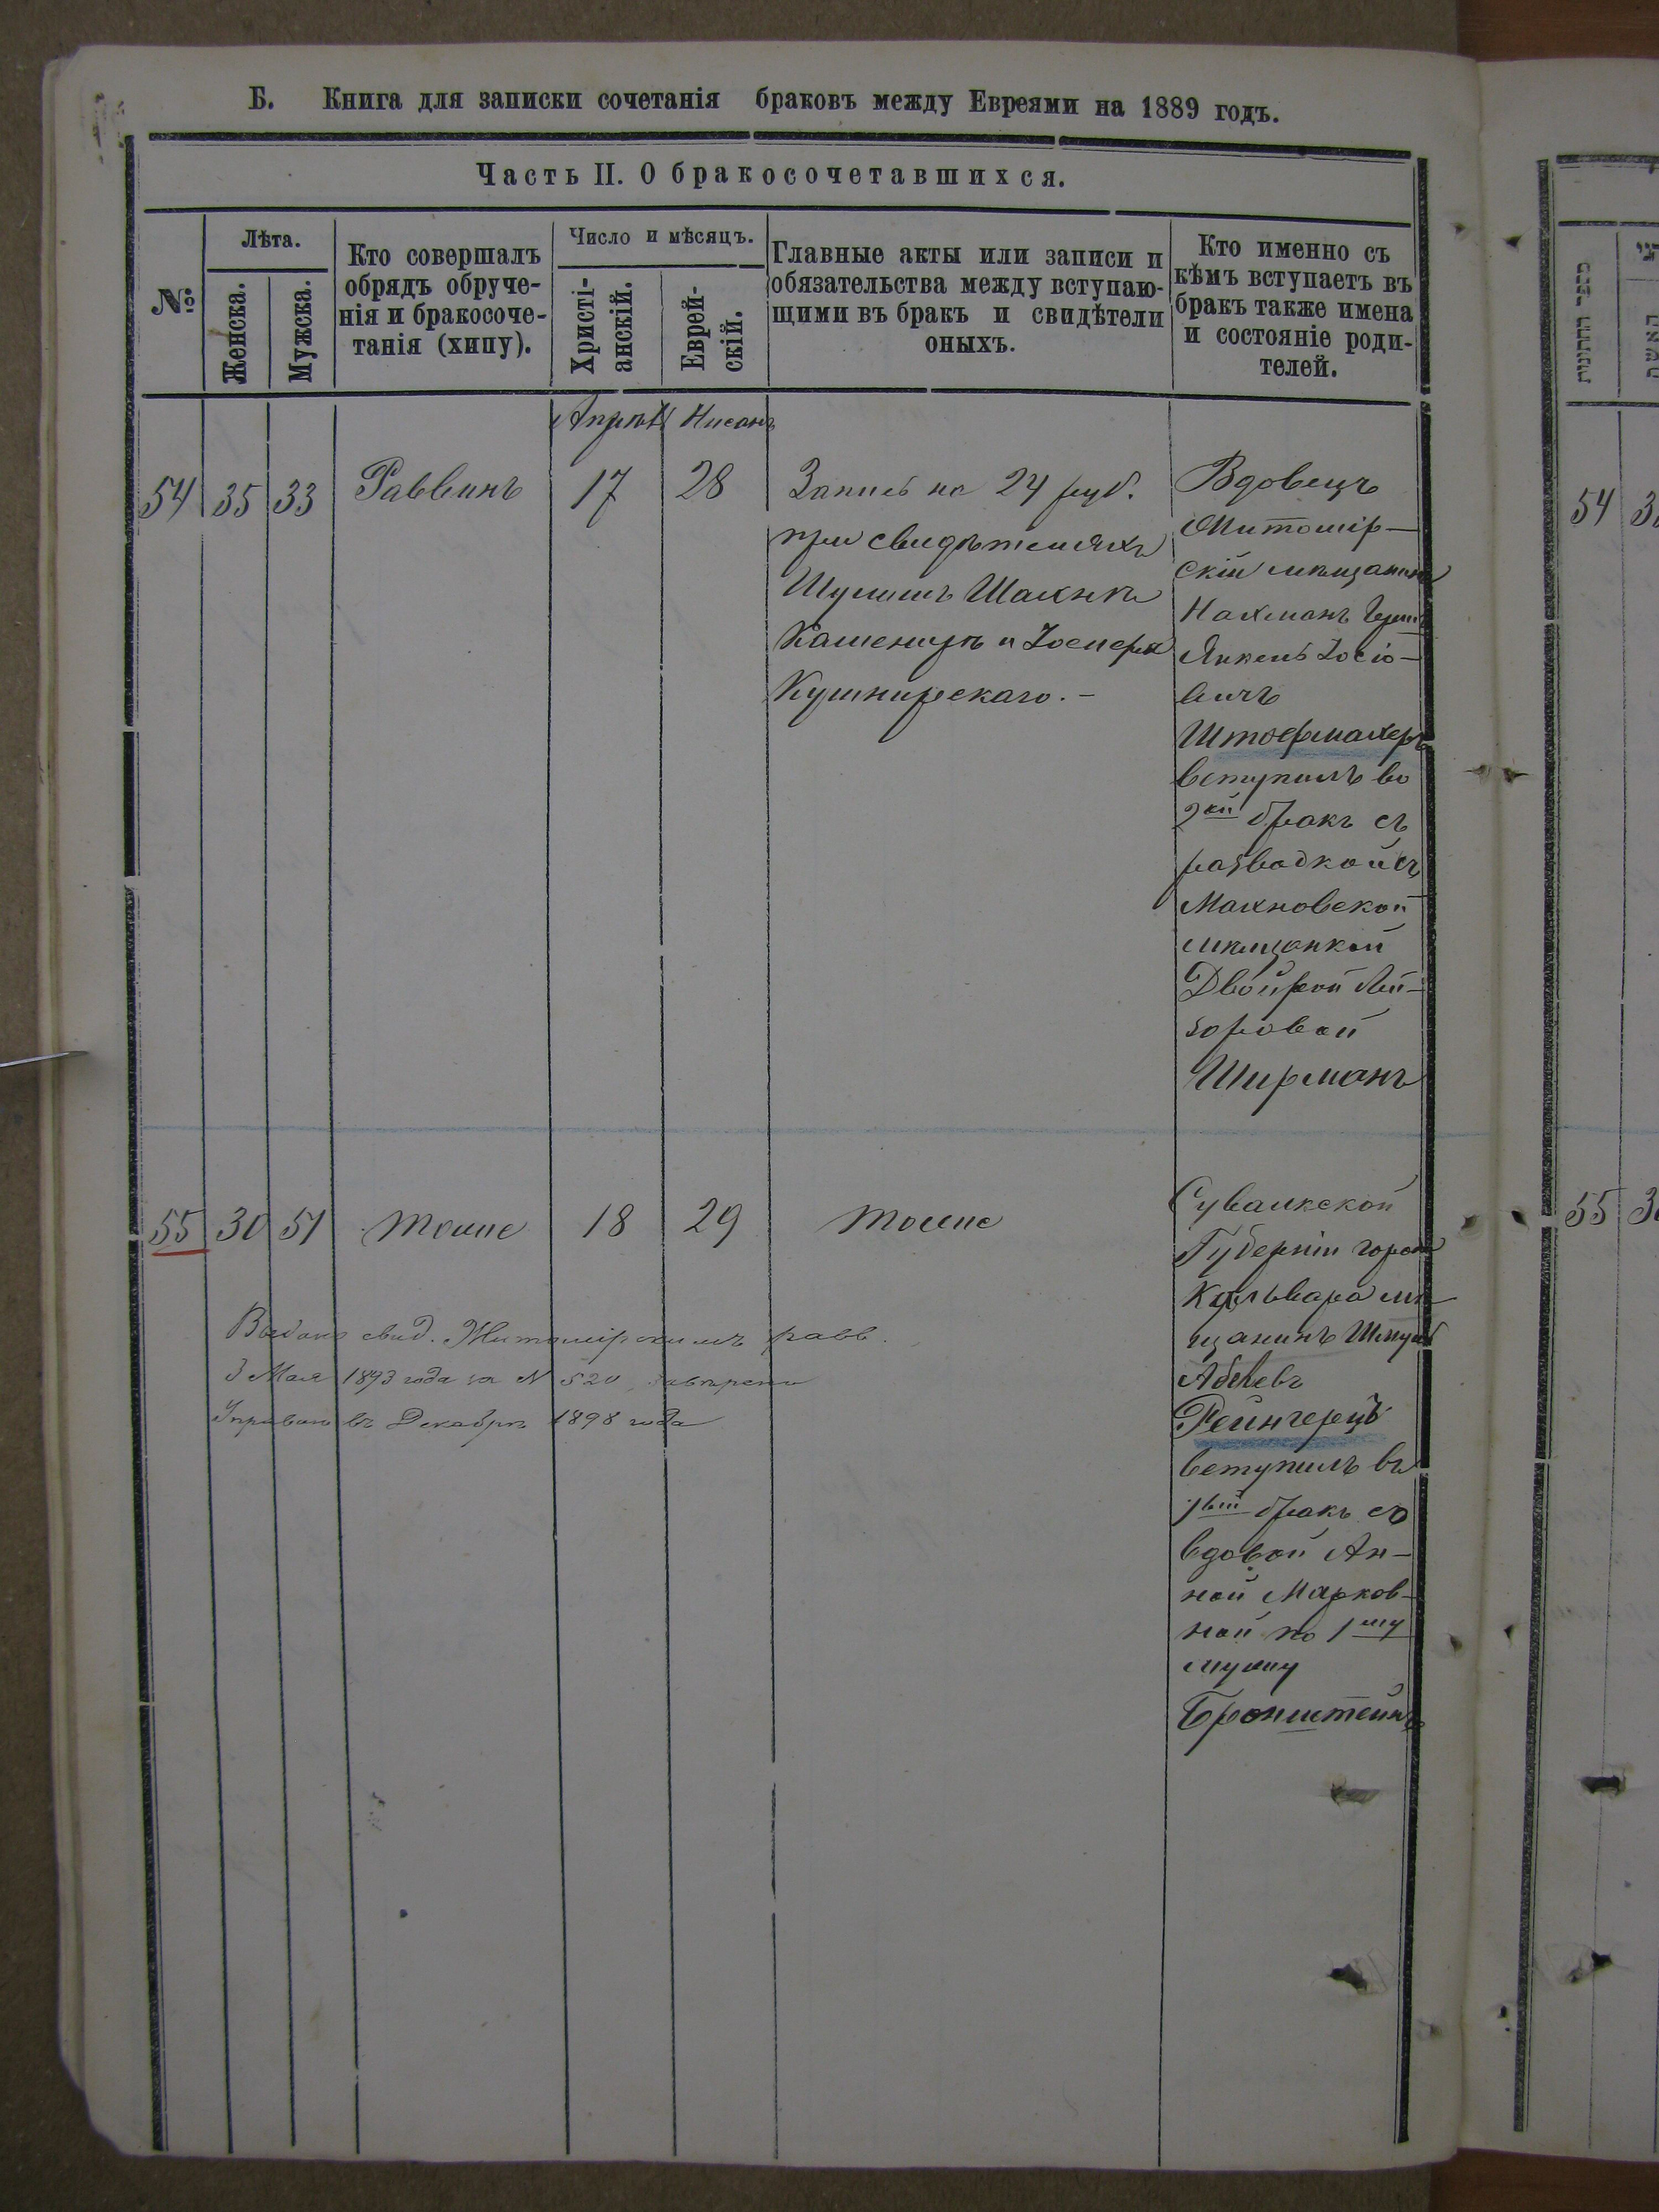 Б. Книга для записки сочетанія браковъ между Евреями на 1889 годъ.
Часть II. О бракосочетавшихся.
№
Лѣта.
Женска.
Мужска.
Кто совершалъ
обрядъ обруче-
нія и бракосоче-
танія (хипу).
Число и мѣсяцъ.
Христі-
анскій.
Еврей-
скій.
Главные акты или записи и
обязательства между вступаю-
щими въ бракъ и свидѣтели
оныхъ.
Кто именно съ
кѣмъ вступаетъ въ
бракъ также имена
и состояніе роди-
телей.
Апрѣль Нисанъ
54 35 33 Раввинъ 17 28
Запись на 24 руб.
при свидѣтеляхъ
Шулимъ Шахнѣ
Каменицъ и Іосифа
Кушнирскаго. -
Вдовецъ
Житомір-
скій мѣщанинъ
Нахманъ Герш
Янкель Іосіо-
вичъ
Штофмахеръ
вступилъ во
2ой бракъ съ
разводкой съ
Махновской
мѣщанкой
Двойрой Лей-
зоровой
Ширманъ
55 30 51 тоже 18 29 тоже
Сувалкской
Губерніи города
Кальвара мѣ-
щанинъ Шмуль
Абелевъ
Рейнгерцъ
вступилъ въ
1вый бракъ съ
вдовой Ан-
ной Марков-
ной по 1му
мужу
Бронштейнъ
Выдано свид. Житомірскимъ равв.
3 Мая 1893 года за N 520
Управою въ Декабрѣ 1898 года
מספר החתונות
האשה
54 3
55 3